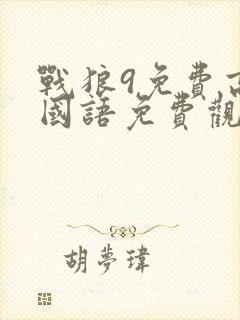 戰狼9免費高
國語免費觀
胡夢瑋